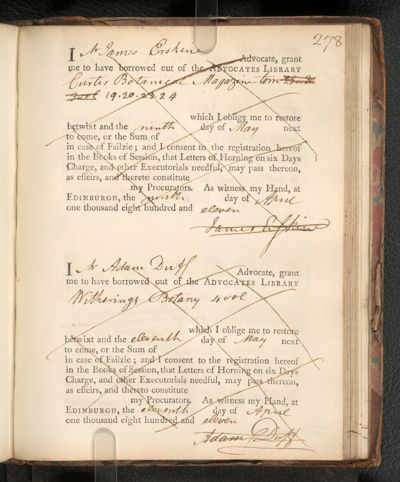 278
I Mr James Erskine Advocate, grant
me to have borrowed out of the ADVOCATES LIBRARY
Curtis Botanical Magazine tom
19. 20. 23. 24
which I oblige me to restore
betwixt and the ninth day of May next
to come, or the Sum of
in case of Failzie; and I consent to the registration hereof
in the Books of Session, that Letters of Horning on six Days
Charge, and other Executorials needful, may pass thereon,
as effeirs, and thereto constitute
my Procurators. As witness my Hand, at
EDINBURGH, the ninth day of April
one thousand eight hundred and eleven
James Erskine
I Mr Adam Duff Advocate, grant
me to have borrowed out of the ADVOCATES LIBRARY
Witherings Botany 4 vol
which I oblige me to restore
betwixt and the eleventh day of May next
to come, or the Sum of
in case of Failzie; and I consent to the registration hereof
in the Books of Session, that Letters of Horning on six Days
Charge, and other Executorials needful, may pass thereon,
as effeirs, and thereto constitute
my Procurators. As witness my Hand, at
EDINBURGH, the eleventh day of April
one thousand eight hundred and eleven
Adam Duff